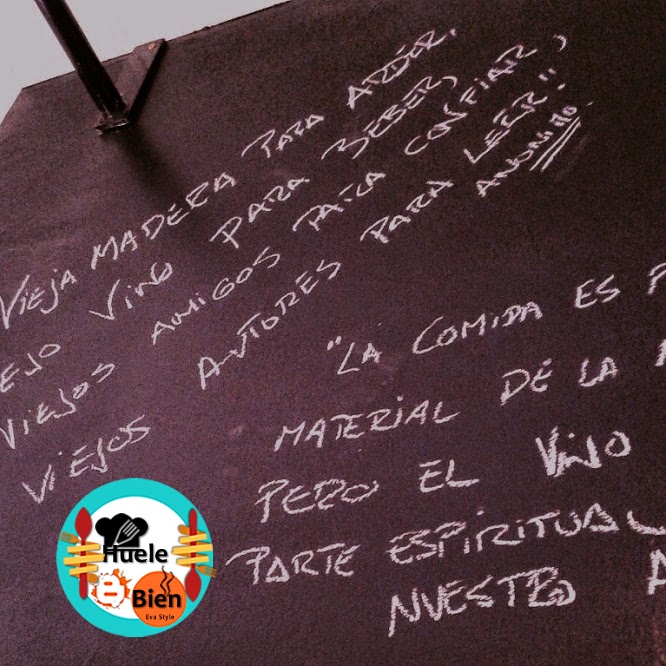 VIEJA MADERA PARA ARDER,
EJO VINO PARA BEBER,
VIEJOS AMIGOS PARA CONFIAR,
VIEJOS AUTORES PARA LEER!!
ANONIMO.
"LA COMIDA ES
MATERIAL DE LA
PERO EL VINO
PARTE ESPIRITUAL
NUESTRO A
Huele
e Bien
Eva Style